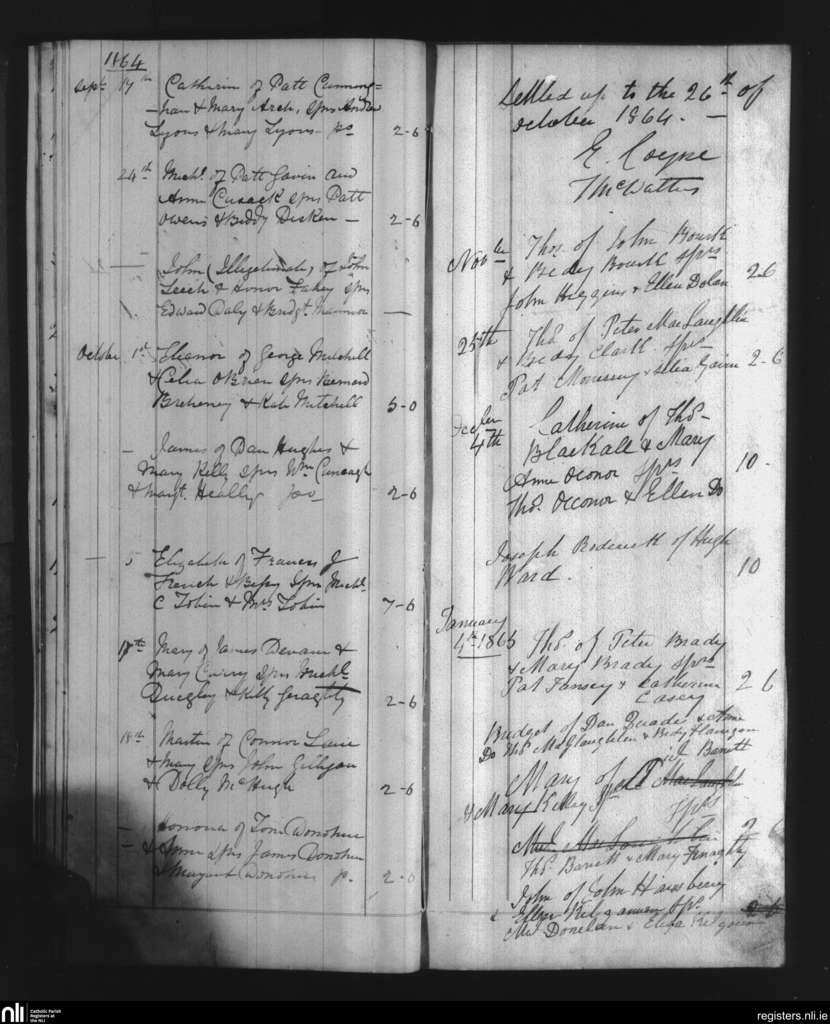 1864
Sept 17th Catherine of Patt Cunning=
-han & Mary Arch, Sprs Andrew
Lyons & Mary Lyons 2-6
24th Michl. of Patt Gavin and
Anne Cusack Sprs Patt
Owens & Biddy Dicken — 2-6
— John (Illegitimate) of John
Leech & Honor Fahey Sprs
Edward Daly & Bridgt. —
October 1st Eleanor of George Mitchell
& Celia OBrien Sprs Bernard
Breheney & Kate Mitchell 5-0
— James of Dan Hughes &
Mary Kelly Sprs Wm
& Margt. Heally 2-6
— 5 Elizabeth of Francis J
French & Sprs Michl.
C Tobin & Mrs Tobin 7-6
17th Mary of James Devane &
Mary Curry Sprs Michl.
Quigley & Kitty Geraghty 2-6
18th Martin of Connor Lane
& Mary Sprs John Gilligan
& Dolly McHugh 2-6
— Honoria of Tom Donohue
& Anne Sprs James Donohue
& Margaret Donohue 2-0
Settled up to the 26th of
October 1864. —
E. Coyne
T McWatters
Nov 6th Thos. of John Bourk
& Beddy Bourk Sprs
John Higgins & Ellen Dolan 2-6
25th Thos. of Peter MacLaughlin
& Beddy Clark Sprs
Pat & Gavin 2-6
4th Catherine of Thos-
Blackall & Mary
Anne Oconor Sprs 10
Thos. Oconor & Ellen Do
Joseph of Hugh
Ward. 10
January
4th 1865 Thos. of Peter Brady
& Mary Brady Sprs
Pat & Catherine 2 6
Casey
Bridget of Dan & Anne
Do Thos McGlaughlen & Beddy Flanigan
Barrett
Mary of
& Mary Kelly
Sprs
2 6
Thos. Barrett & Mary
John of John
& Ellen Sprs 2 6
Donelan & Eliza
nli
Catholic Parish
Registers at
the NLI
registers.nli.ie